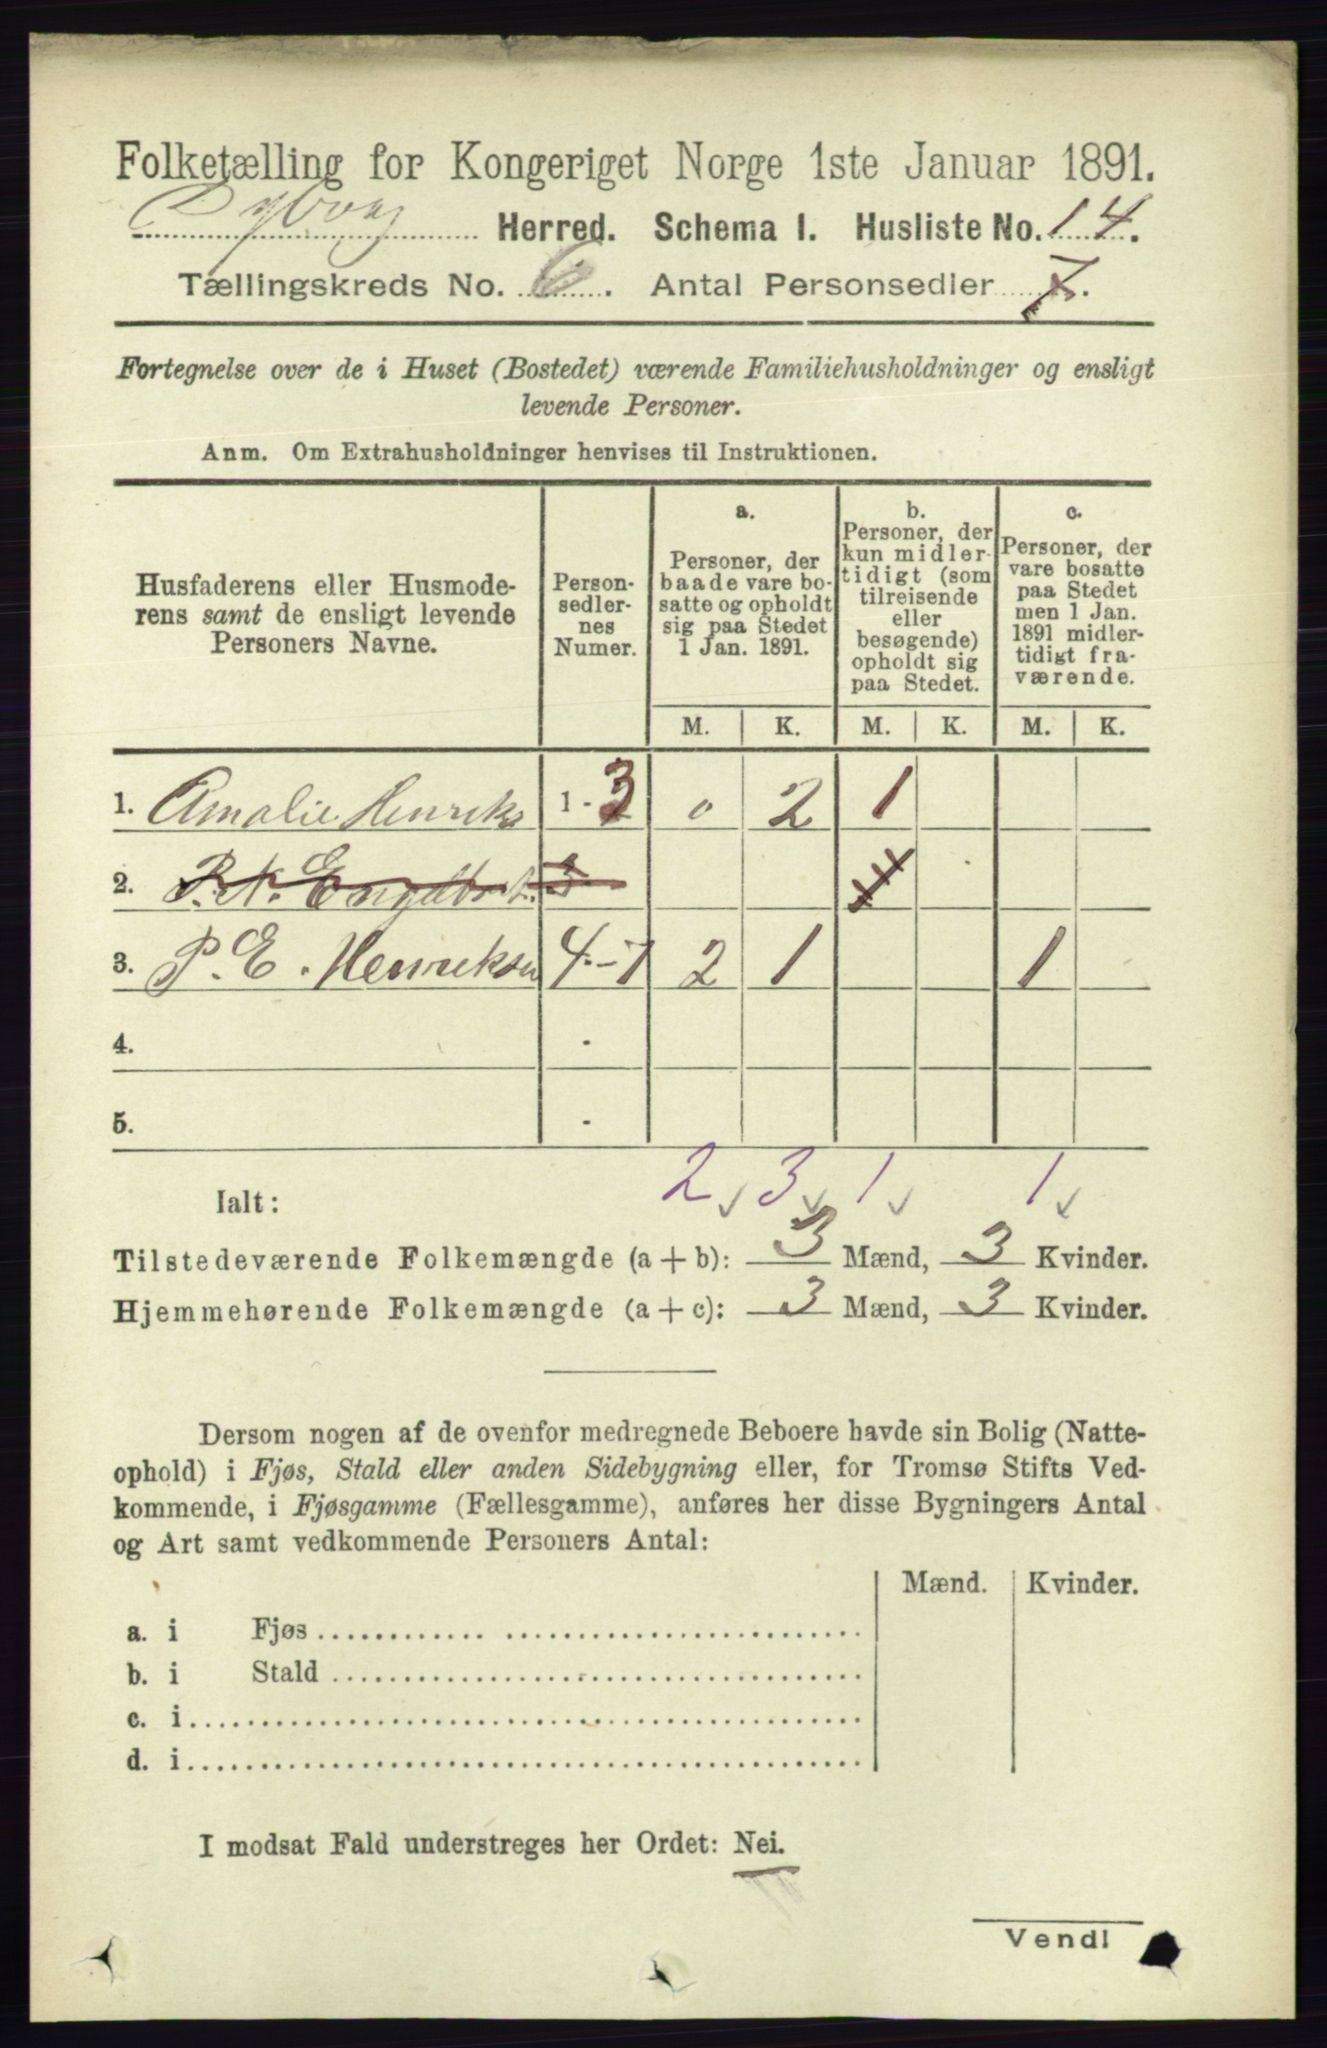 Folketælling for Kongeriget Norge 1ste Januar 1891.
Dybvaag Herred. Schema I. Husliste No. 14.
Tællingskreds No. 6. Antal Personsedler 7.
Fortegnelse over de i Huset (Bostedet) værende Familiehusholdninger og ensligt
levende Personer.
Anm. Om Extrahusholdninger henvises til Instruktionen.
Husfaderens eller Husmode-
rens samt de ensligt levende
Personers Navne.
Person-
sedler-
nes
Numer.
a.
Personer, der
baade vare bo-
satte og opholdt
sig paa Stedet
1 Jan. 1891.
b.
Personer, der
kun midler-
tidigt (som
tilreisende
eller
besøgende)
opholdt sig
paa Stedet.
c.
Personer, der
vare bosatte
paa Stedet
men 1 Jan.
1891 midler-
tidigt fra-
værende.
M. K. M. K. M. K.
1. Amalie Henriks 1 - 3 0 2 1
2. P. N. Engelbrt. 3
3. P. E. Henriksen 4 - 7 2 1 1
4. -
5. -
Ialt: 2 3 1 1
Tilstedeværende Folkemængde (a + b): 3 Mænd, 3 Kvinder.
Hjemmehørende Folkemængde (a + c): 3 Mænd, 3 Kvinder.
Dersom nogen af de ovenfor medregnede Beboere havde sin Bolig (Natte-
ophold) i Fjøs, Stald eller anden Sidebygning eller, for Tromsø Stifts Ved-
kommende, i Fjøsgamme (Fællesgamme), anføres her disse Bygningers Antal
og Art samt vedkommende Personers Antal:
Mænd. Kvinder.
a. i Fjøs
b. i Stald
c. i
d. i
I modsat Fald understreges her Ordet: Nei.
Vend!